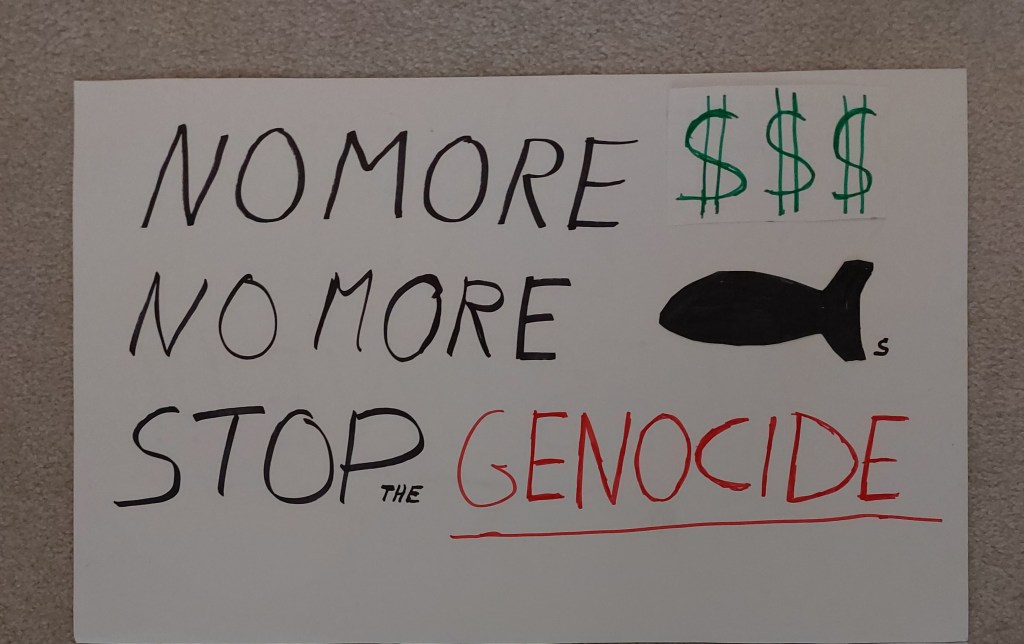 NO MORE $$$
NO MORE s
STOP THE GENOCIDE